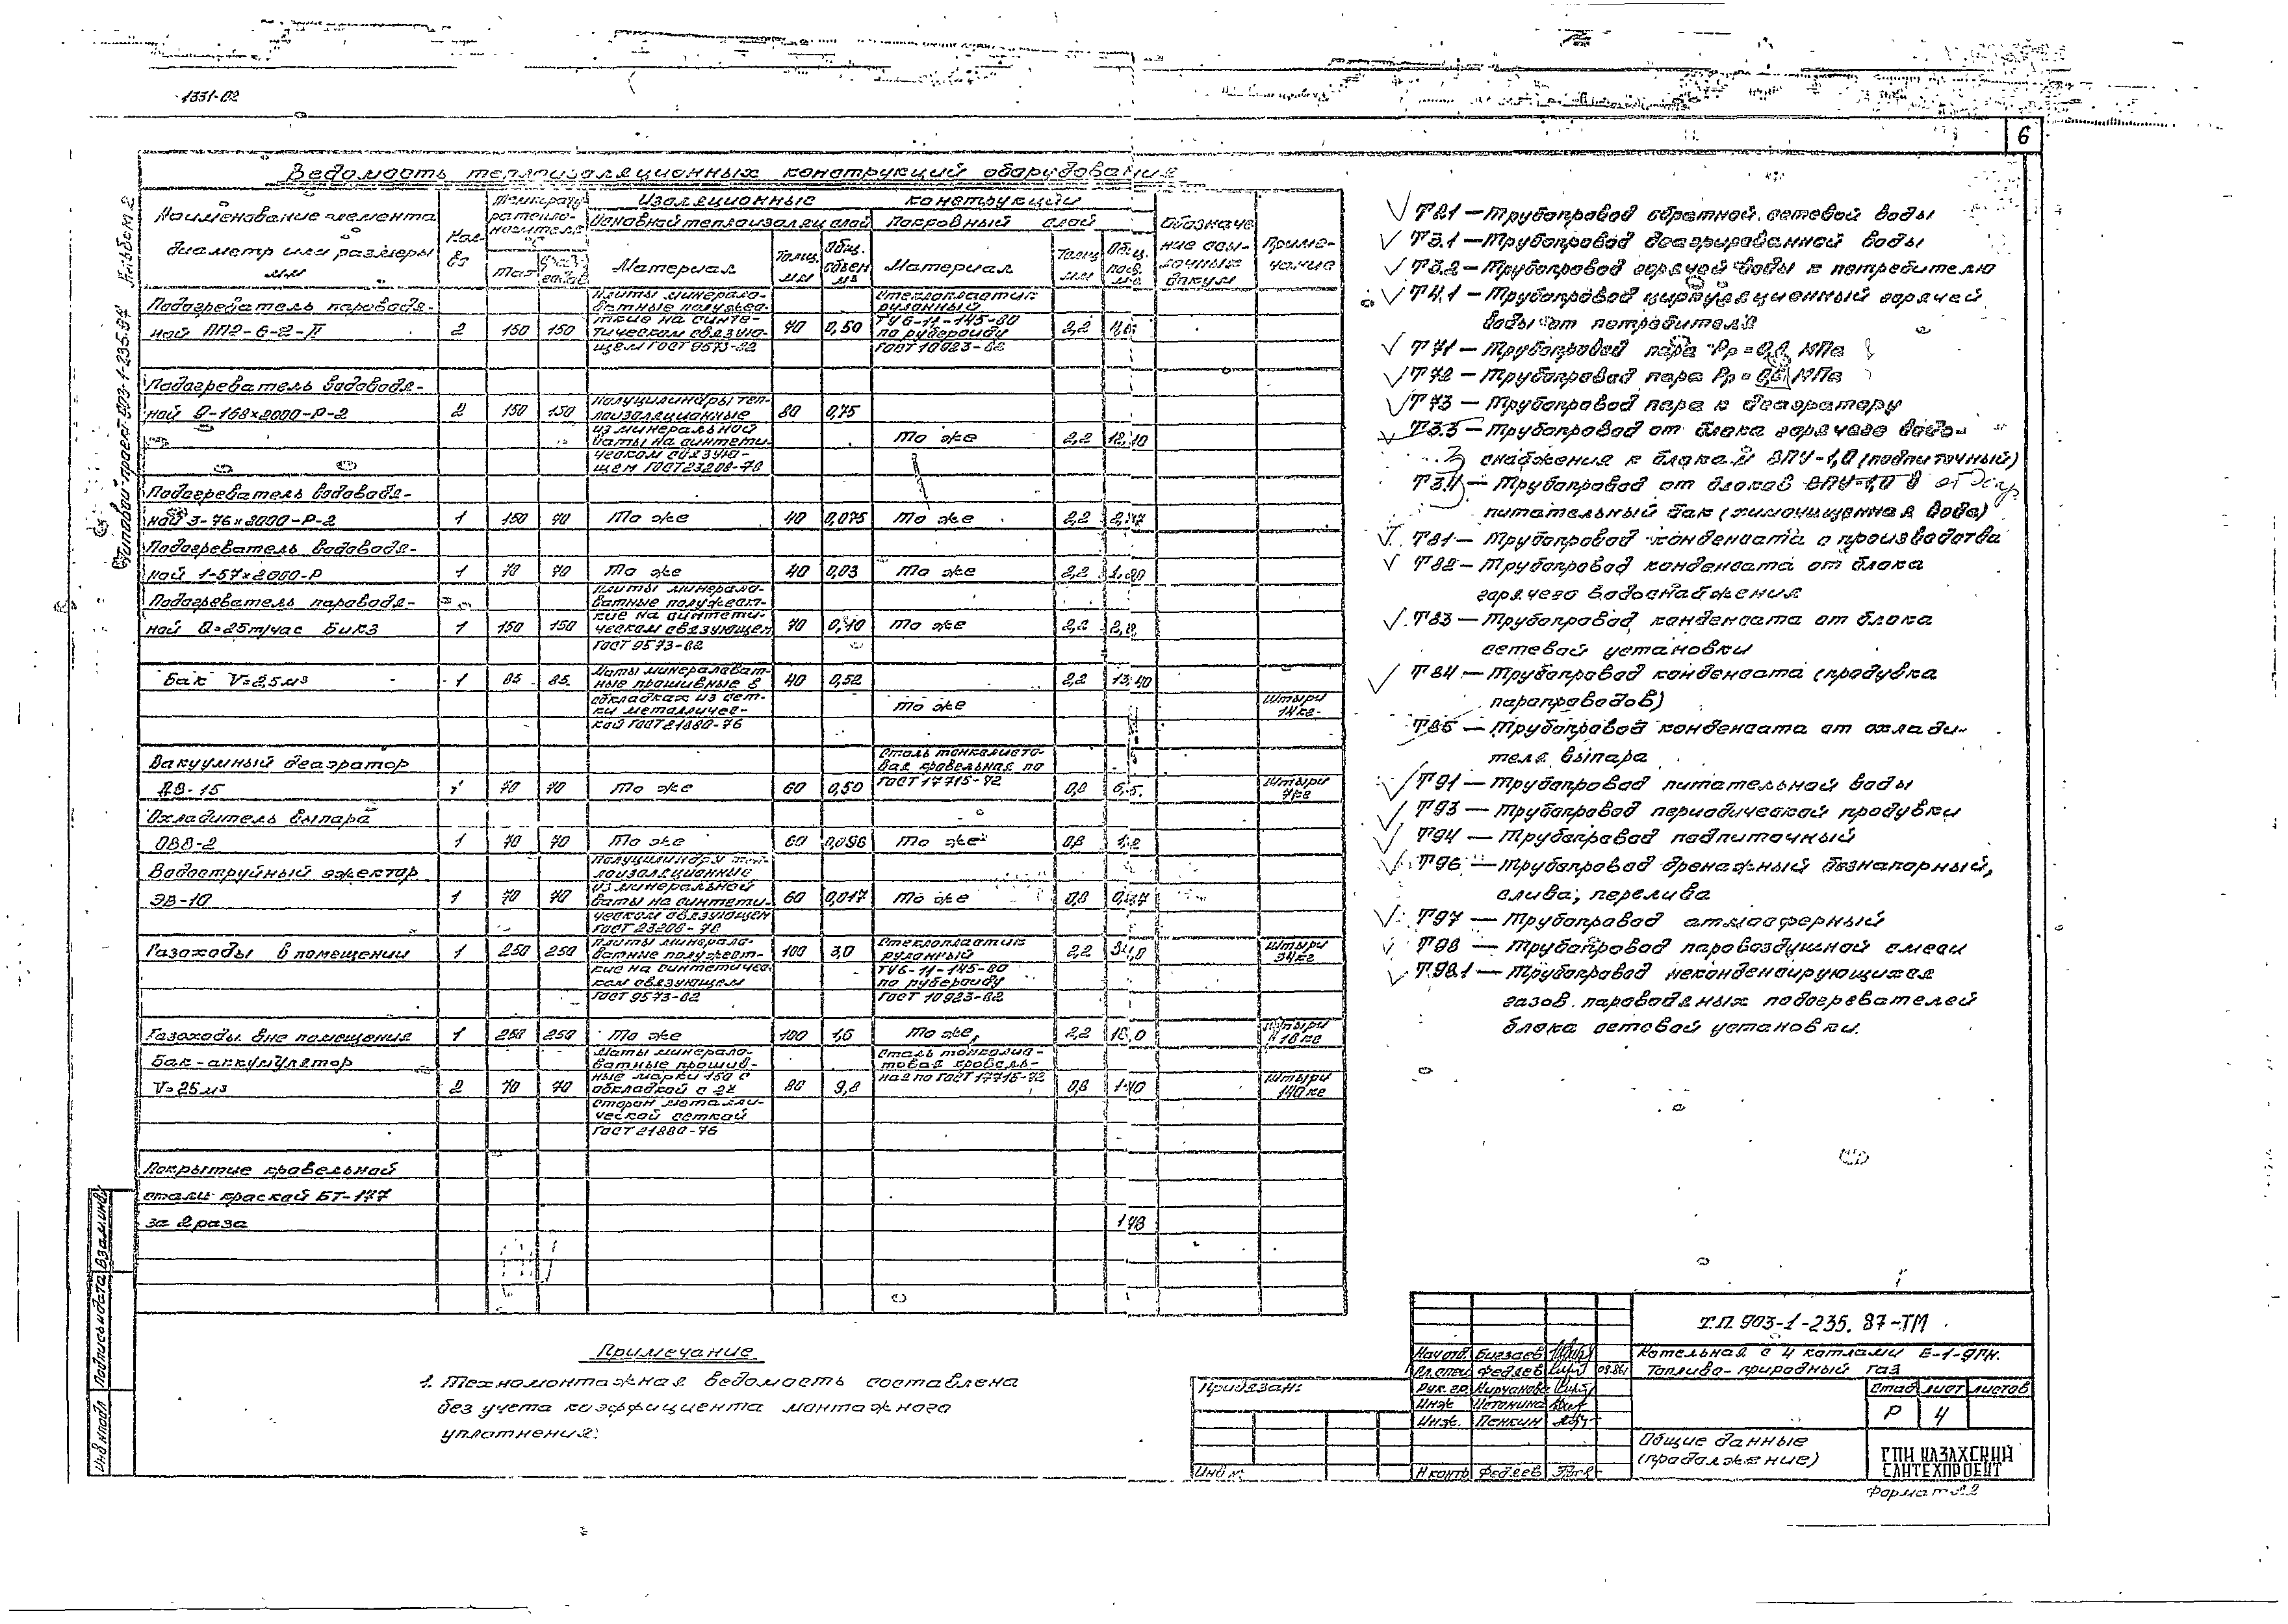 1331-02
6
Альбом 2
Типовой проект 903-1-235.87
Ведомость теплоизоляционных конструкций оборудования
Наименование элемента
диаметр или размеры
мм
Кол-
во
Изоляционные конструкции
Основной теплоизоляц слой
Покровный слой
Материал
Толщ.
мм
Общ.
объем
м³
Материал
Толщ.
мм
Обозначе
Приме-
чание
Подогреватель пароводя-
ной ПП2-6-2-II 2 150 150
плиты минерало-
ватные полужес-
ткие на синте-
тическом связую-
щем ГОСТ 9573-82
40 0,50
Стеклопластик
рулонный
ТУ6-11-145-80
по рубероиду
ГОСТ 10923-82
2,2
Подогреватель водоводя-
ной 9-168×2000-Р-2 2 150 150
полуцилиндры теп-
лоизоляционные
из минеральной
ваты на синтети-
ческом связую-
щем ГОСТ 23208-78
80 0,75
То же 2,2 12,10
Подогреватель водоводя-
ной 3-76×2000-Р-2 1 150 70 То же 40 0,075 То же 2,2
Подогреватель водоводя-
ной 1-57×2000-Р 1 70 70 То же 40 0,03 То же 2,2
Подогреватель пароводя-
ной Q=25т/час БиКЗ 1 150 150
плиты минерало-
ватные полужест-
кие на синтети-
ческом связующем
ГОСТ 9573-82
0,10 То же 2,2
Бак V=2,5м³ 1 85 85
Маты минераловат-
ные прошивные в
обкладках из сет-
ки металличес-
кой ГОСТ 21880-76
40 0,52
То же 2,2 13,40
Штыри
14кг
Вакуумный деаэратор
ДВ-15 1 70 70 То же 60 0,50
Сталь тонколисто-
вая кровельная по
ГОСТ 17715-72
0,8
Штыри
7кг
Охладитель выпара
ОВВ-2 1 70 70 То же 60 0,096 То же 0,8 1,2
Водоструйный эжектор
ЭВ-10 1 70 70
полуцилиндры теп-
лоизоляционные
из минеральной
ваты на синтети-
ческом связующем
ГОСТ 23208-78
60 0,017 То же 0,8
Газоходы в помещении 1 250 250
плиты минерало-
ватные полужест-
кие на синтетичес-
ком связующем
ГОСТ 9573-82
100 3,0
Стеклопластик
рулонный
ТУ6-11-145-80
по рубероиду
ГОСТ 10923-82
2,2 34,0
Штыри
34кг
Газоходы вне помещения 1 250 250 То же 100 1,6 То же 2,2 18,0
Штыри
18кг
Бак-аккумулятор
V=25м³ 2 70 70
Маты минерало-
ватные прошив-
ные марки 150 с
обкладкой с 2х
сторон металли-
ческой сеткой
ГОСТ 21880-76
80 9,8
Сталь тонколис-
товая кровель-
ная по ГОСТ 17715-72
0,8 140
Штыри
140кг
Покрытие кровельной
стали краской БТ-177
за 2 раза 148
Примечание
1. Техномонтажная ведомость составлена
без учета коэффициента монтажного
уплотнения.
Т21 — Трубопровод обратной сетевой воды
Т3.1 — Трубопровод деаэрированной воды
Т3.2 — Трубопровод горячей воды к потребителю
Т4.1 — Трубопровод циркуляционный горячей
воды от потребителя
Т71 — Трубопровод пара Рр = МПа
Т72 — Трубопровод пара Рр = МПа
Т73 — Трубопровод пара к деаэратору
Т3.3 — Трубопровод от блока горячего водо-
снабжения к блокам ВПУ-1,0 (подпиточный)
Т3.4 — Трубопровод от блоков ВПУ-1,0 в
питательный бак (химочищенная вода)
Т81 — Трубопровод конденсата с производства
Т82 — Трубопровод конденсата от блока
горячего водоснабжения
Т83 — Трубопровод конденсата от блока
сетевой установки
Т84 — Трубопровод конденсата (продувка
паропроводов)
Т85 — Трубопровод конденсата от охлади-
теля выпара
Т91 — Трубопровод питательной воды
Т93 — Трубопровод периодической продувки
Т94 — Трубопровод подпиточный
Т96 — Трубопровод дренажный безнапорный,
слива, перелива
Т97 — Трубопровод атмосферный
Т98 — Трубопровод паровоздушной смеси
Т98.1 — Трубопровод неконденсирующихся
газов пароводяных подогревателей
блока сетевой установки.
Т.П. 903-1-235.87-ТМ
Нач отд. Бигзаев
Гл. спец Федяев 09.86
Рук. гр. Кирчанова
Инж Истомина
Инж. Пенкин
Н контр Федяев
Котельная с 4 котлами Е-1-9ГН.
Топливо-природный газ
Стад лист листов
Р 4
Общие данные
(продолжение)
ГПИ КАЗАХСКИЙ
САНТЕХПРОЕКТ
Формат А2
Привязан:
Инв №
Взам инв №
Подпись и дата
Инв № подл